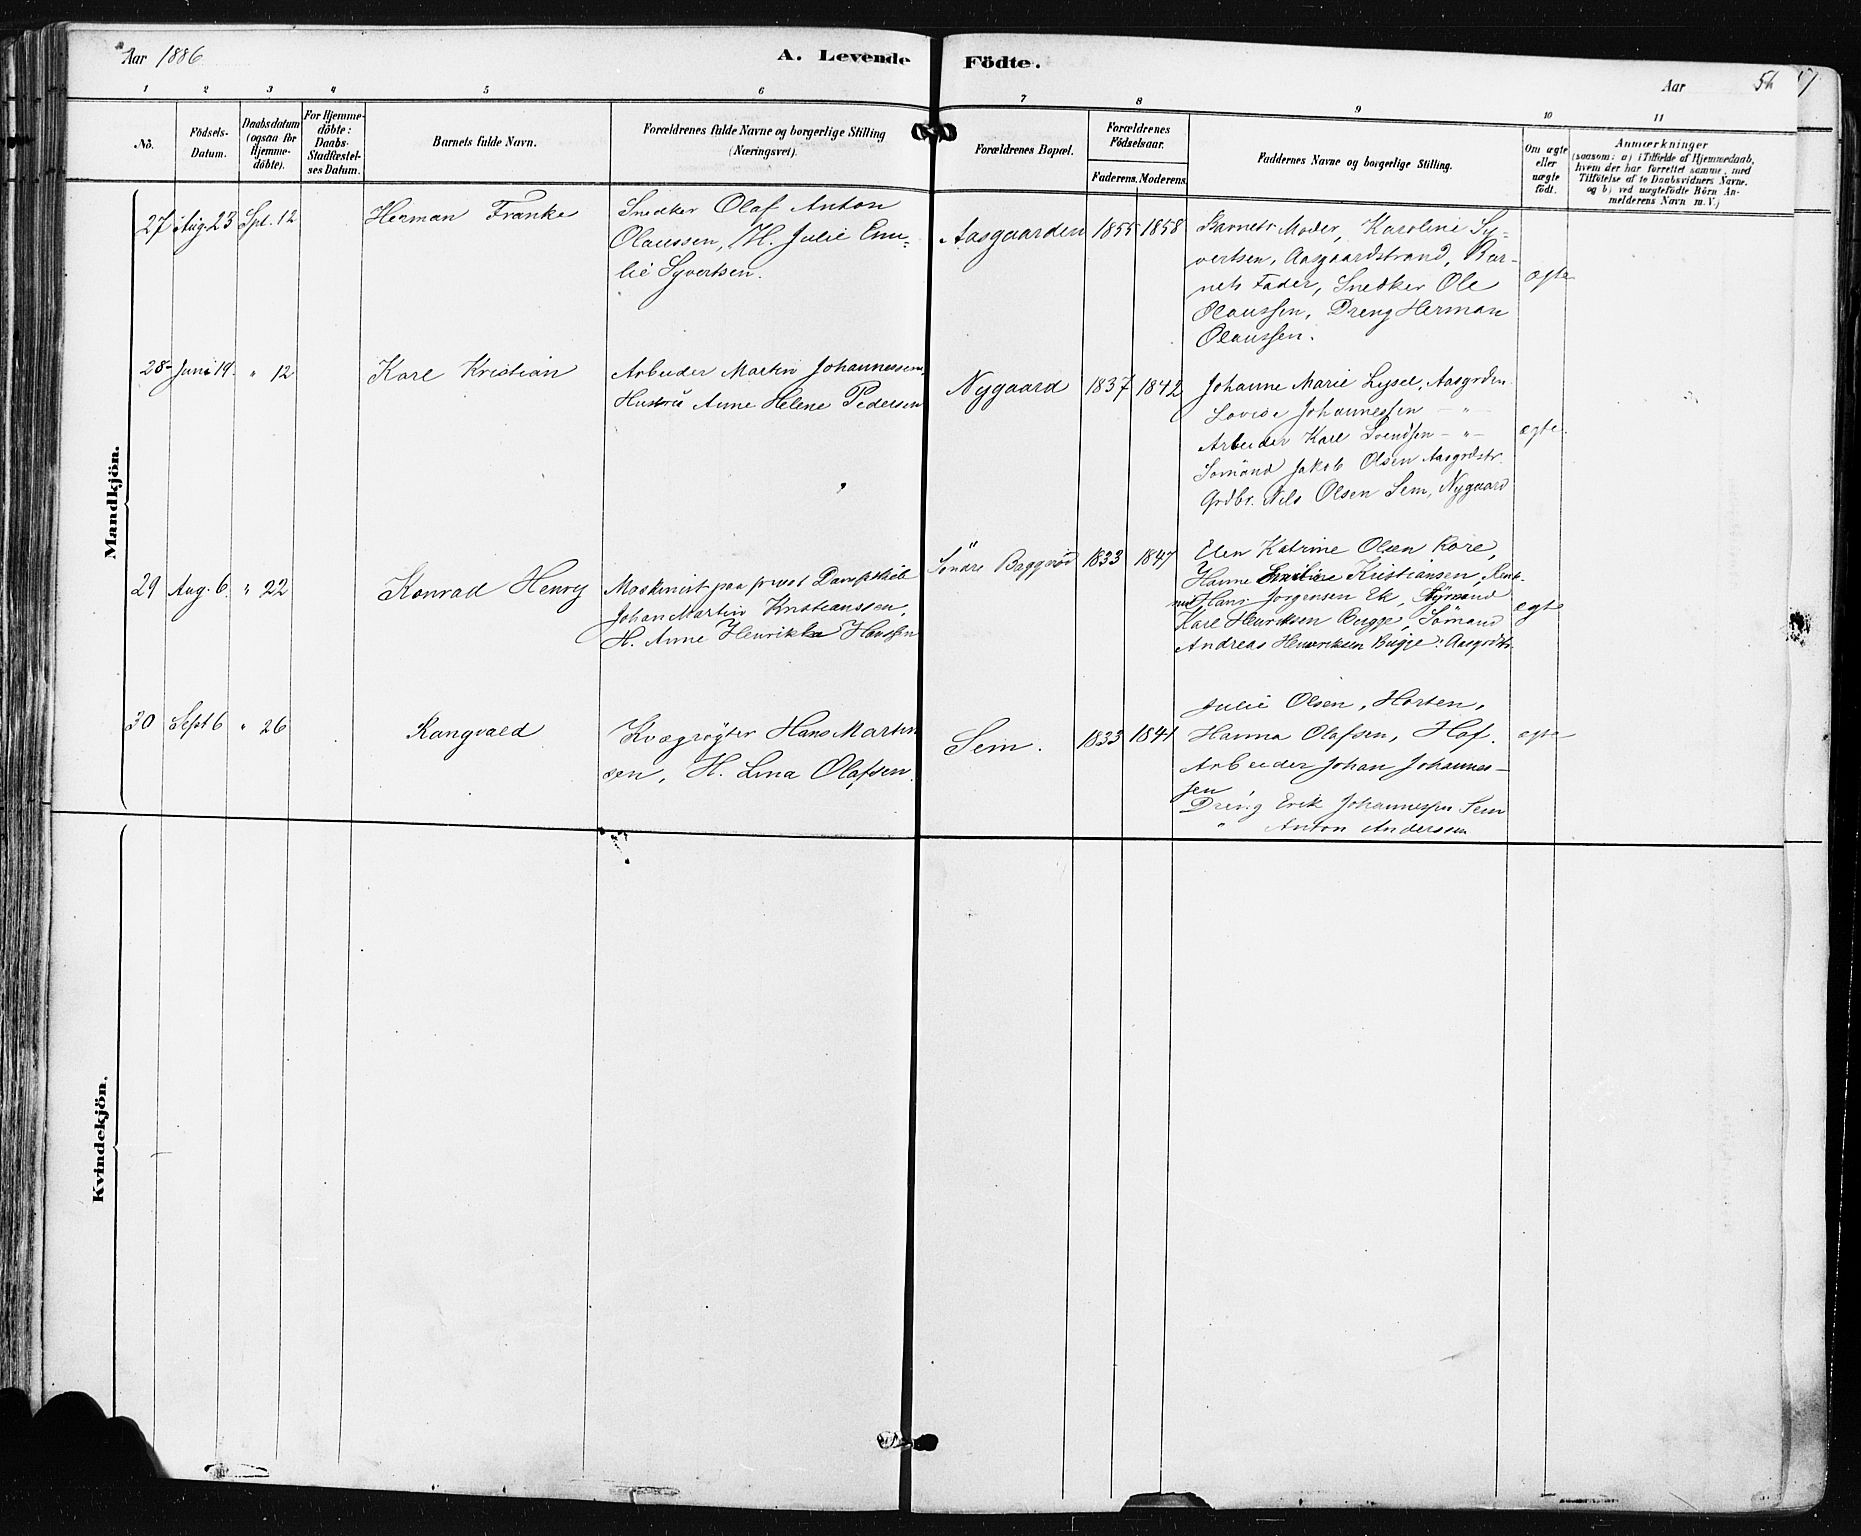 Aar 1886
A. Levende Födte.
Aar 56 57
1 2 3 4 5 6 7 8 9 10 11
No.
Födsels-Datum.
Daabsdatum (ogsaa for Hjemmedöbte).
For Hjemmedöbte: Daabs-Stadfæstelses Datum.
Barnets fulde Navn.
Forældrenes fulde Navne og borgerlige Stilling (Næringsvei).
Forældrenes Bopæl.
Forældrenes Födselsaar.
Faderens. Moderens.
Faddernes Navne og borgerlige Stilling.
Om ægte eller uægte födt.
Anmærkninger
(saasom: a) i Tilfælde af Hjemmedaab,
hvem der har forrettet samme, med
Tilföielse af to Daabsvidners Navne,
og b) ved uægtefödte Börn Anmelderens Navn m. V.)
Mandkjön.
27 Aug. 23 Spt. 12 Herman Franke
Snedker Olaf Anton
Olaussen, H. Julie Emi-
lie Syvertsen.
Aasgaarden 1855 1858
Barnets Moder, Karoline Sy-
vertsen, Aasgaardstrand, Bar-
nets Fader, Snedker Ole
Olaussen, Dreng Herman
Olaussen.
ægte
28 Juni 19 " 12 Karl Kristian
Arbeider Martin Johannessen,
Hustru Anne Helene Pedersen
Nygaard 1837 1842
Johanne Marie Lysel, Aasgrden.
Lovise Johannessen — " —
Arbeider Karl Svendsen — " —
Sømand Jakob Olsen Aasgrdstr.
Grdbr. Nils Olsen Sem, Nygaard
ægte.
29 Aug. 6. " 22 Konrad Henry
Maskinist paa Dampskib
Johan Martin Kristianssen,
H. Anne Henrikka Hanssen
Söndre Baggerød 1833 1847
Elen Katrine Olsen Rore,
Hanne Kristiansen,
Hans Jørgensen Ek,
Karl Henriksen Bugge, Sömand
Andreas Henriksen Bugge: Aasgrdstr.
ægt
30 Sept 6 " 26 Rangvald
Kvægrøgter Hans Martin
sen, H. Lina Olafsen.
Sem. 1833 1841
Julie Olsen, Horten,
Hanna Olafsen, Hof.
Arbeider Johan Johannes-
sen
Dreng Erik Johannessen Sem
" Anton Anderssen
ægte
Kvindekjön.